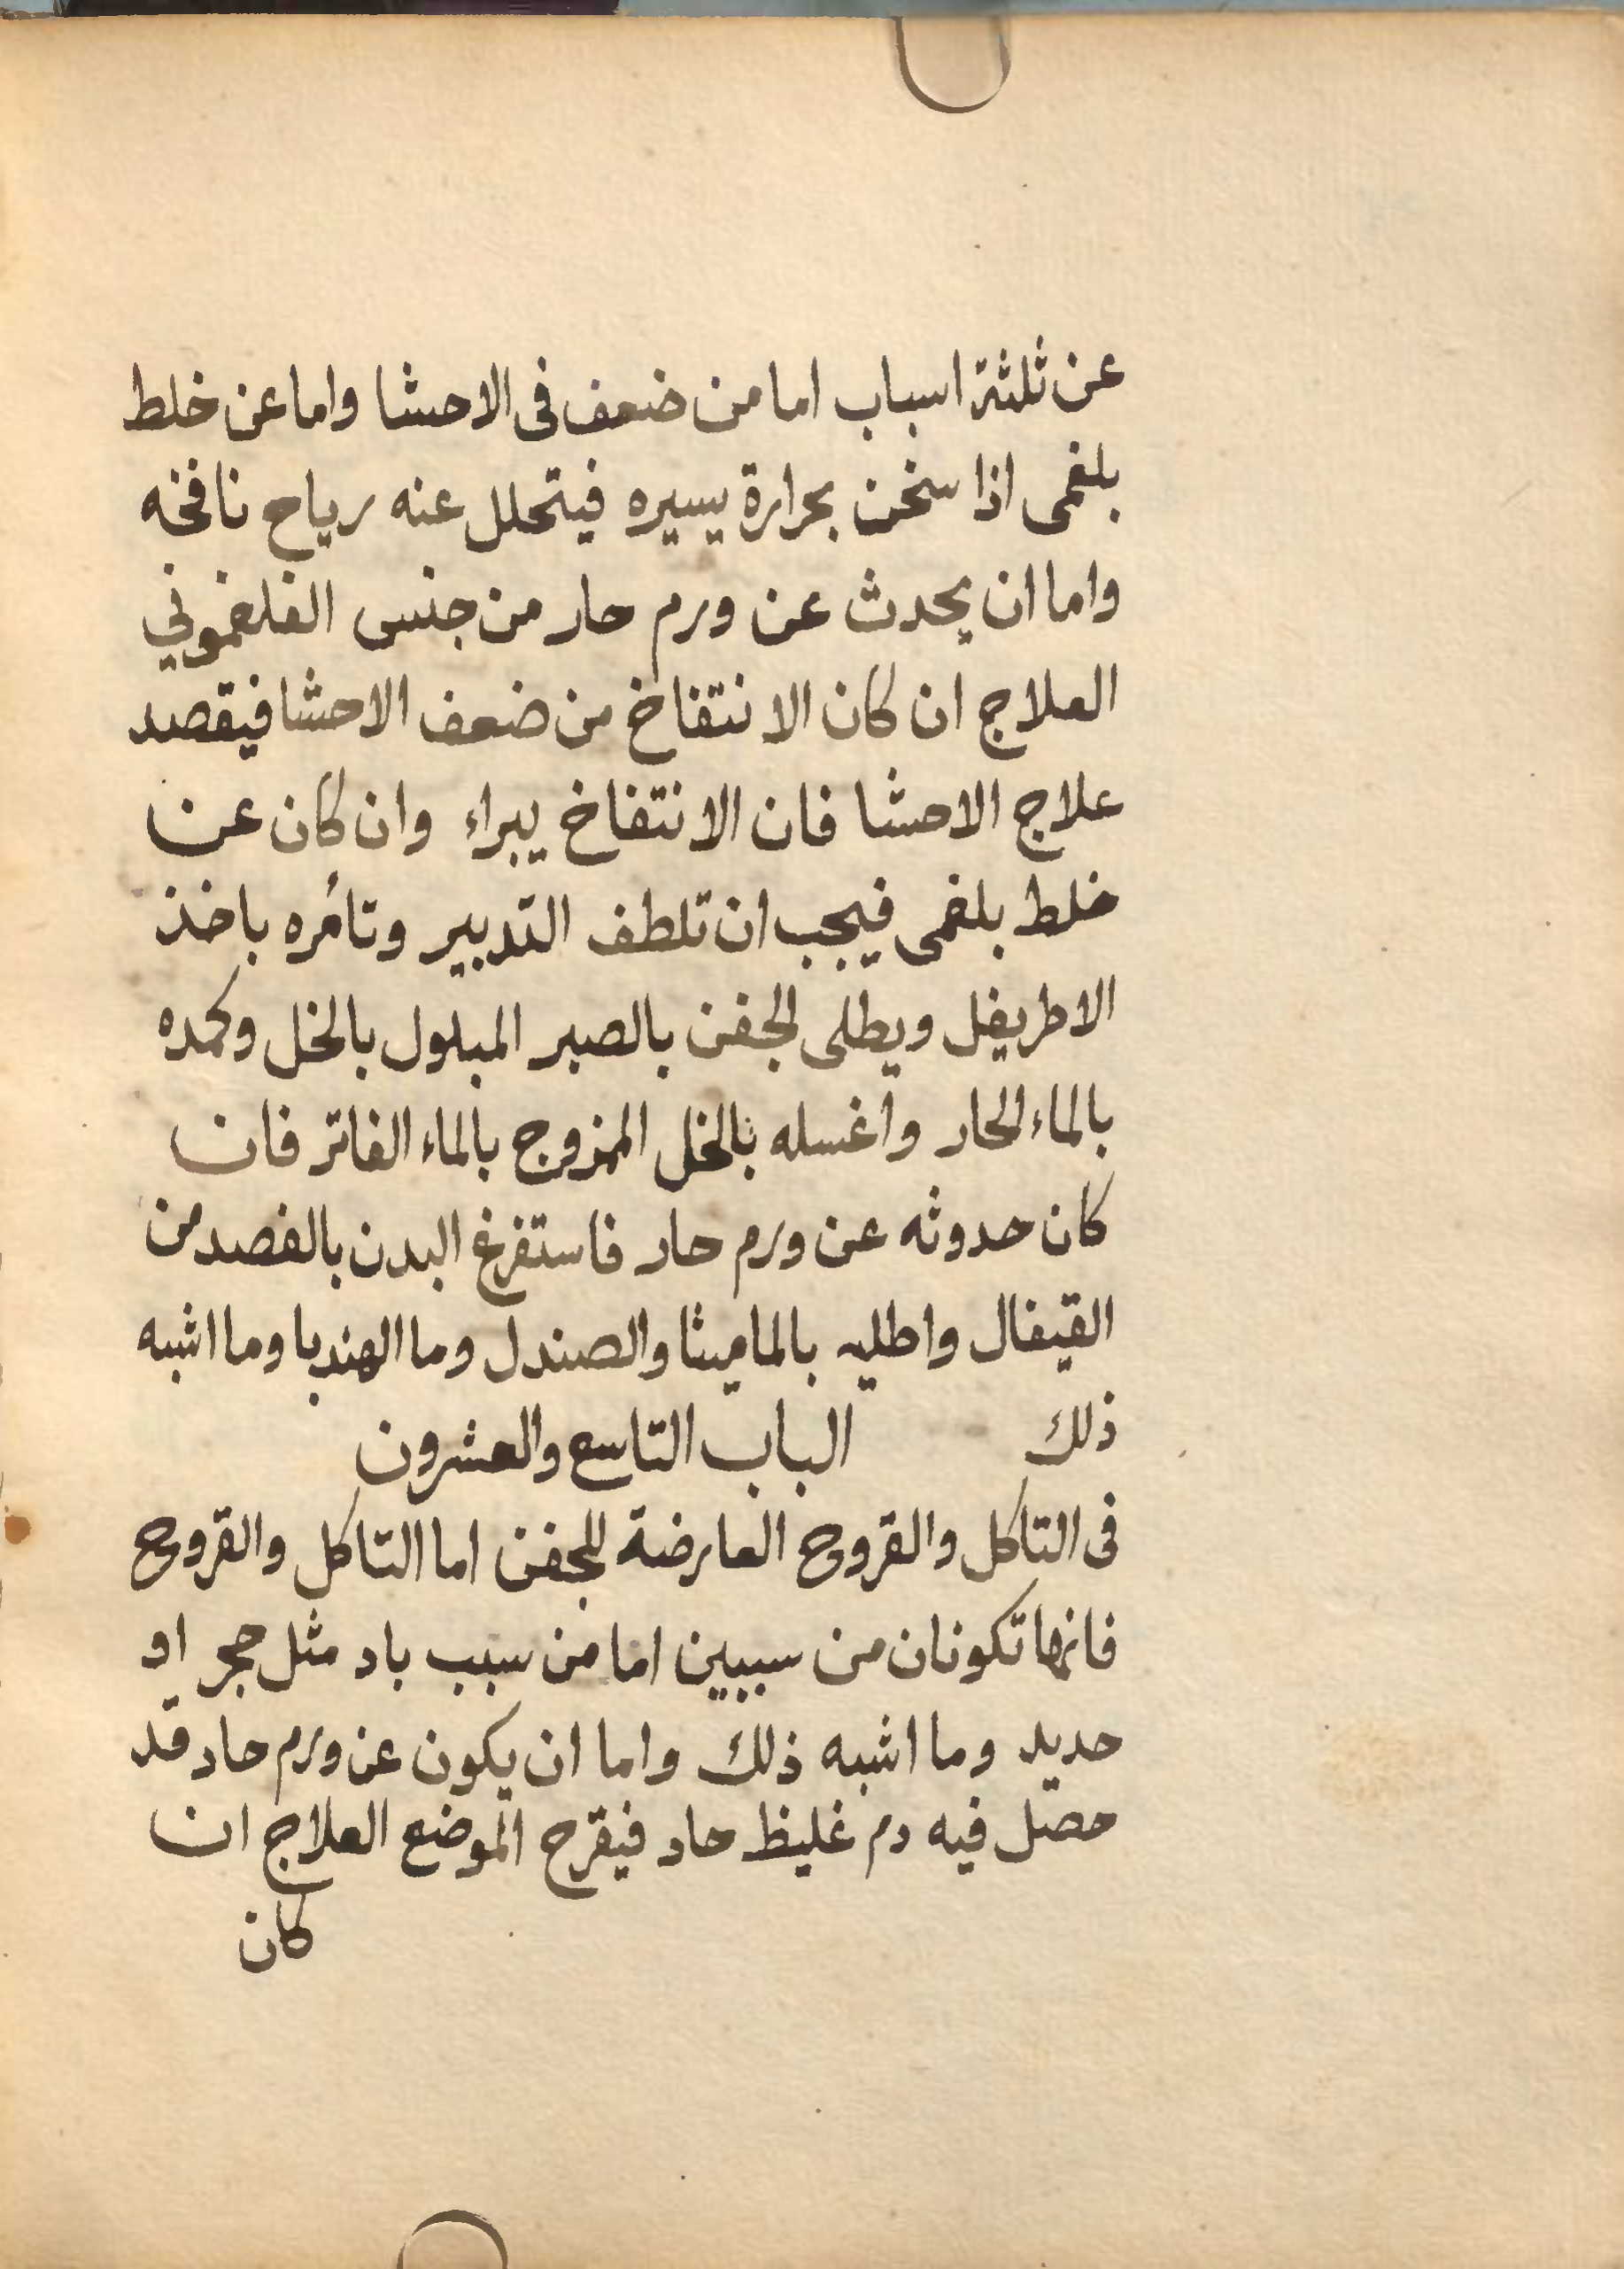 عن ثلثة اسباب اما من ضعف فى الاحشا واما عن خلط
بلغمى اذا سخن بحرارة يسيره فيتحلل عنه رياح نافخه
واما ان يحدث عن ورم حار من جنس الفلغموني
العلاج ان كان الانتفاخ من ضعف الاحشا فيقصد
علاج الاحشا فان الانتفاخ يبراء وان كان عن
خلط بلغمى فيجب ان تلطف التدبير وتأمره باخذ
الاطريفل ويطلى الجفن بالصبر المبلول بالخل وكمده
بالماء الحار وأغسله بالخل الممزوج بالماء الفاتر فان
كان حدوثه عن ورم حار فاستفرغ البدن بالفصد من
القيفال واطليه بالماميثا والصندل وما الهندبا وما اشبه
ذلك الباب التاسع والعشرون
فى التاكل والقروح العارضة للجفن اما التاكل والقروح
فانها تكونان من سببين اما من سبب باد مثل حجر او
حديد وما اشبه ذلك واما ان يكون عن ورم حاد قد
حصل فيه دم غليظ حاد فيقرح الموضع العلاج ان
كان